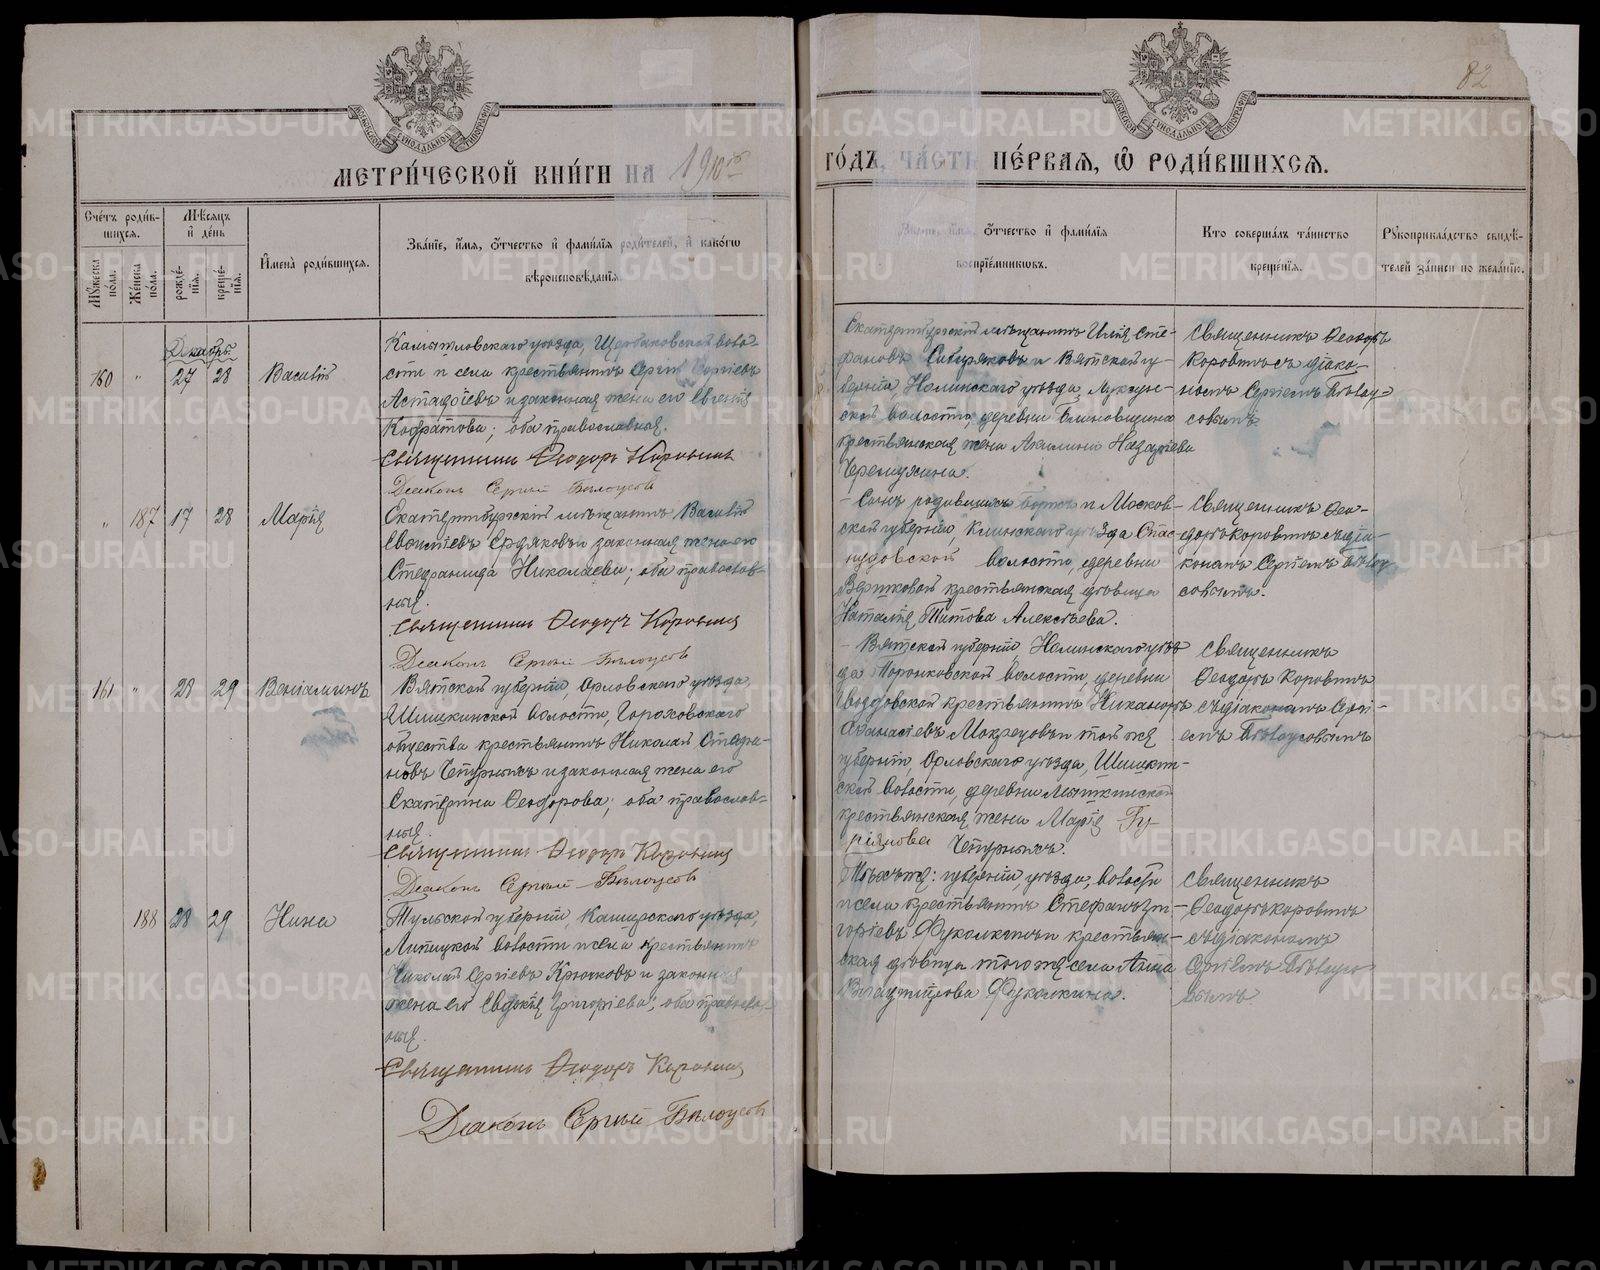 82
МЕТРИ́ЧЕСКОЙ КНИ́ГИ НА 1910й
ГО́ДЪ, ЧА́СТЬ ПЕ́РВАЯ, Ѽ РОДИ́ВШИХСЯ.
Сче́тъ роди́в-
шихся.
Мꙋ́жеска по́ла.
Же́нска по́ла.
Мѣ́сяцъ и҆ де́нь
рожде́-
нїя.
креще́-
нїя.
И҆мена̀ роди́вшихся.
Зва́нїе, и҆́мя, ѻ҆́тчество и҆ фами́лїя роди́телей, и҆ како́гѡ
вѣроисповѣ́данїя.
Зва́нїе, и҆́мя, ѻ҆́тчество и҆ фами́лїя
воспрїе́мникωвъ.
Кто̀ соверша́лъ та́инство
креще́нїя.
Рꙋкоприкла́дство свидѣ́-
телей за́писи по жела́нїю.
Декабрь
160 " 27 28 Василій
Камышловскаго уѣзда, Щербаковской воло-
сти и села крестьянинъ Сергій Сергіевъ
Астафіевъ и законная жена его Евгенія
Кодратова; оба православная.
Священникъ Ѳеодоръ Коровинъ
Діаконъ Сергий Бѣлоусовъ
Екатеринбургскій мѣщанинъ Илія Сте-
фановъ Сибиряковъ и Вятской гу-
берніи, Нолинскаго уѣзда,
ской волости, деревни
крестьянская жена Акилина Назаріева
Черемухина.
Священникъ Ѳеодоръ
Коровинъ съ діако-
номъ Сергіемъ Бѣлоу-
совымъ
" 187 17 28 Марія
Екатеринбургскій мѣщанинъ Василій
Ердяковъ и законная жена его
Стефанида Николаева; оба православ-
ныя.
Священникъ Ѳеодоръ Коровинъ
Діаконъ Сергий Бѣлоусовъ
и Москов-
ской губерніи, Клинскаго уѣзда Спас-
волости, деревни
крестьянская дѣвица
Наталія Титова Алексѣева.
Священникъ Ѳео-
доръ Коровинъ съ діа-
кономъ Сергіемъ Бѣлоу
совымъ.
161 " 28 29 Веніаминъ
Вятской губерніи, Орловскаго уѣзда,
Шишкинской волости, Гороховскаго
общества крестьянинъ Николай Стефа-
новъ Чепурныхъ и законная жена его
Екатерина Ѳеодорова; оба православ-
ныя.
Священникъ Ѳеодоръ Коровинъ
Діаконъ Сергий Бѣлоусовъ
Вятской губерніи, Нолинскаго уѣз-
да волости, деревни
крестьянинъ Никаноръ
Аѳанасіевъ Мокрецовъ и той же
губерніи, Орловскаго уѣзда, Шишкин-
ской волости, деревни
крестьянская жена Марія Гу-
ріянова Чепурныхъ.
Священникъ
Ѳеодоръ Коровинъ
съ діакономъ Сергі-
емъ Бѣлоусовымъ
188 28 29 Нина
Тульской губерніи, Каширскаго уѣзда,
Липицкой волости и села крестьянинъ
Николай Сергіевъ Крючковъ и законная
жена его Евдокія Григоріева; оба правосл-
ныя.
Священникъ Ѳеодоръ Коровинъ
Діаконъ Сергий Бѣлоусовъ
Тѣхъ же: губерніи, уѣзда, волости
и села крестьянинъ Стефанъ Гри-
горіевъ Фуколкинъ и крестьян-
ская дѣвица того же села Анна
Фуколкина.
Священникъ
Ѳеодоръ Коровинъ
съ діакономъ
Сергіемъ Бѣлоусо
вымъ